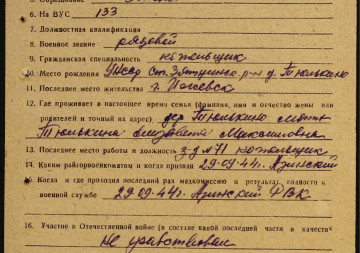 6. На ВУС 133
7. Должностная квалификация
8. Военное звание рядовой
9. Гражданская специальность кожевщик
10. Место рождения ст. р-н д. Тюлькино
11. Последнее место жительства г. Ижевск
12. Где проживает в настоящее время семья (фамилия, имя и отчество жены или
родителей и точный их адрес) дер Тюлькино мать
Тюлькина Елизавета Максимовна
13. Последнее место работы и должность з-д №71 кожевщик
14. Каким райгорвоенкоматом и когда призван 29.09.44г. Азинский
15. Когда и где проходил последний раз медкомиссию и результат годности к
военной службе 29.09.44г. Азинский РВК
16. Участие в Отечественной войне (в составе какой последней части и в качестве
Не участвовал